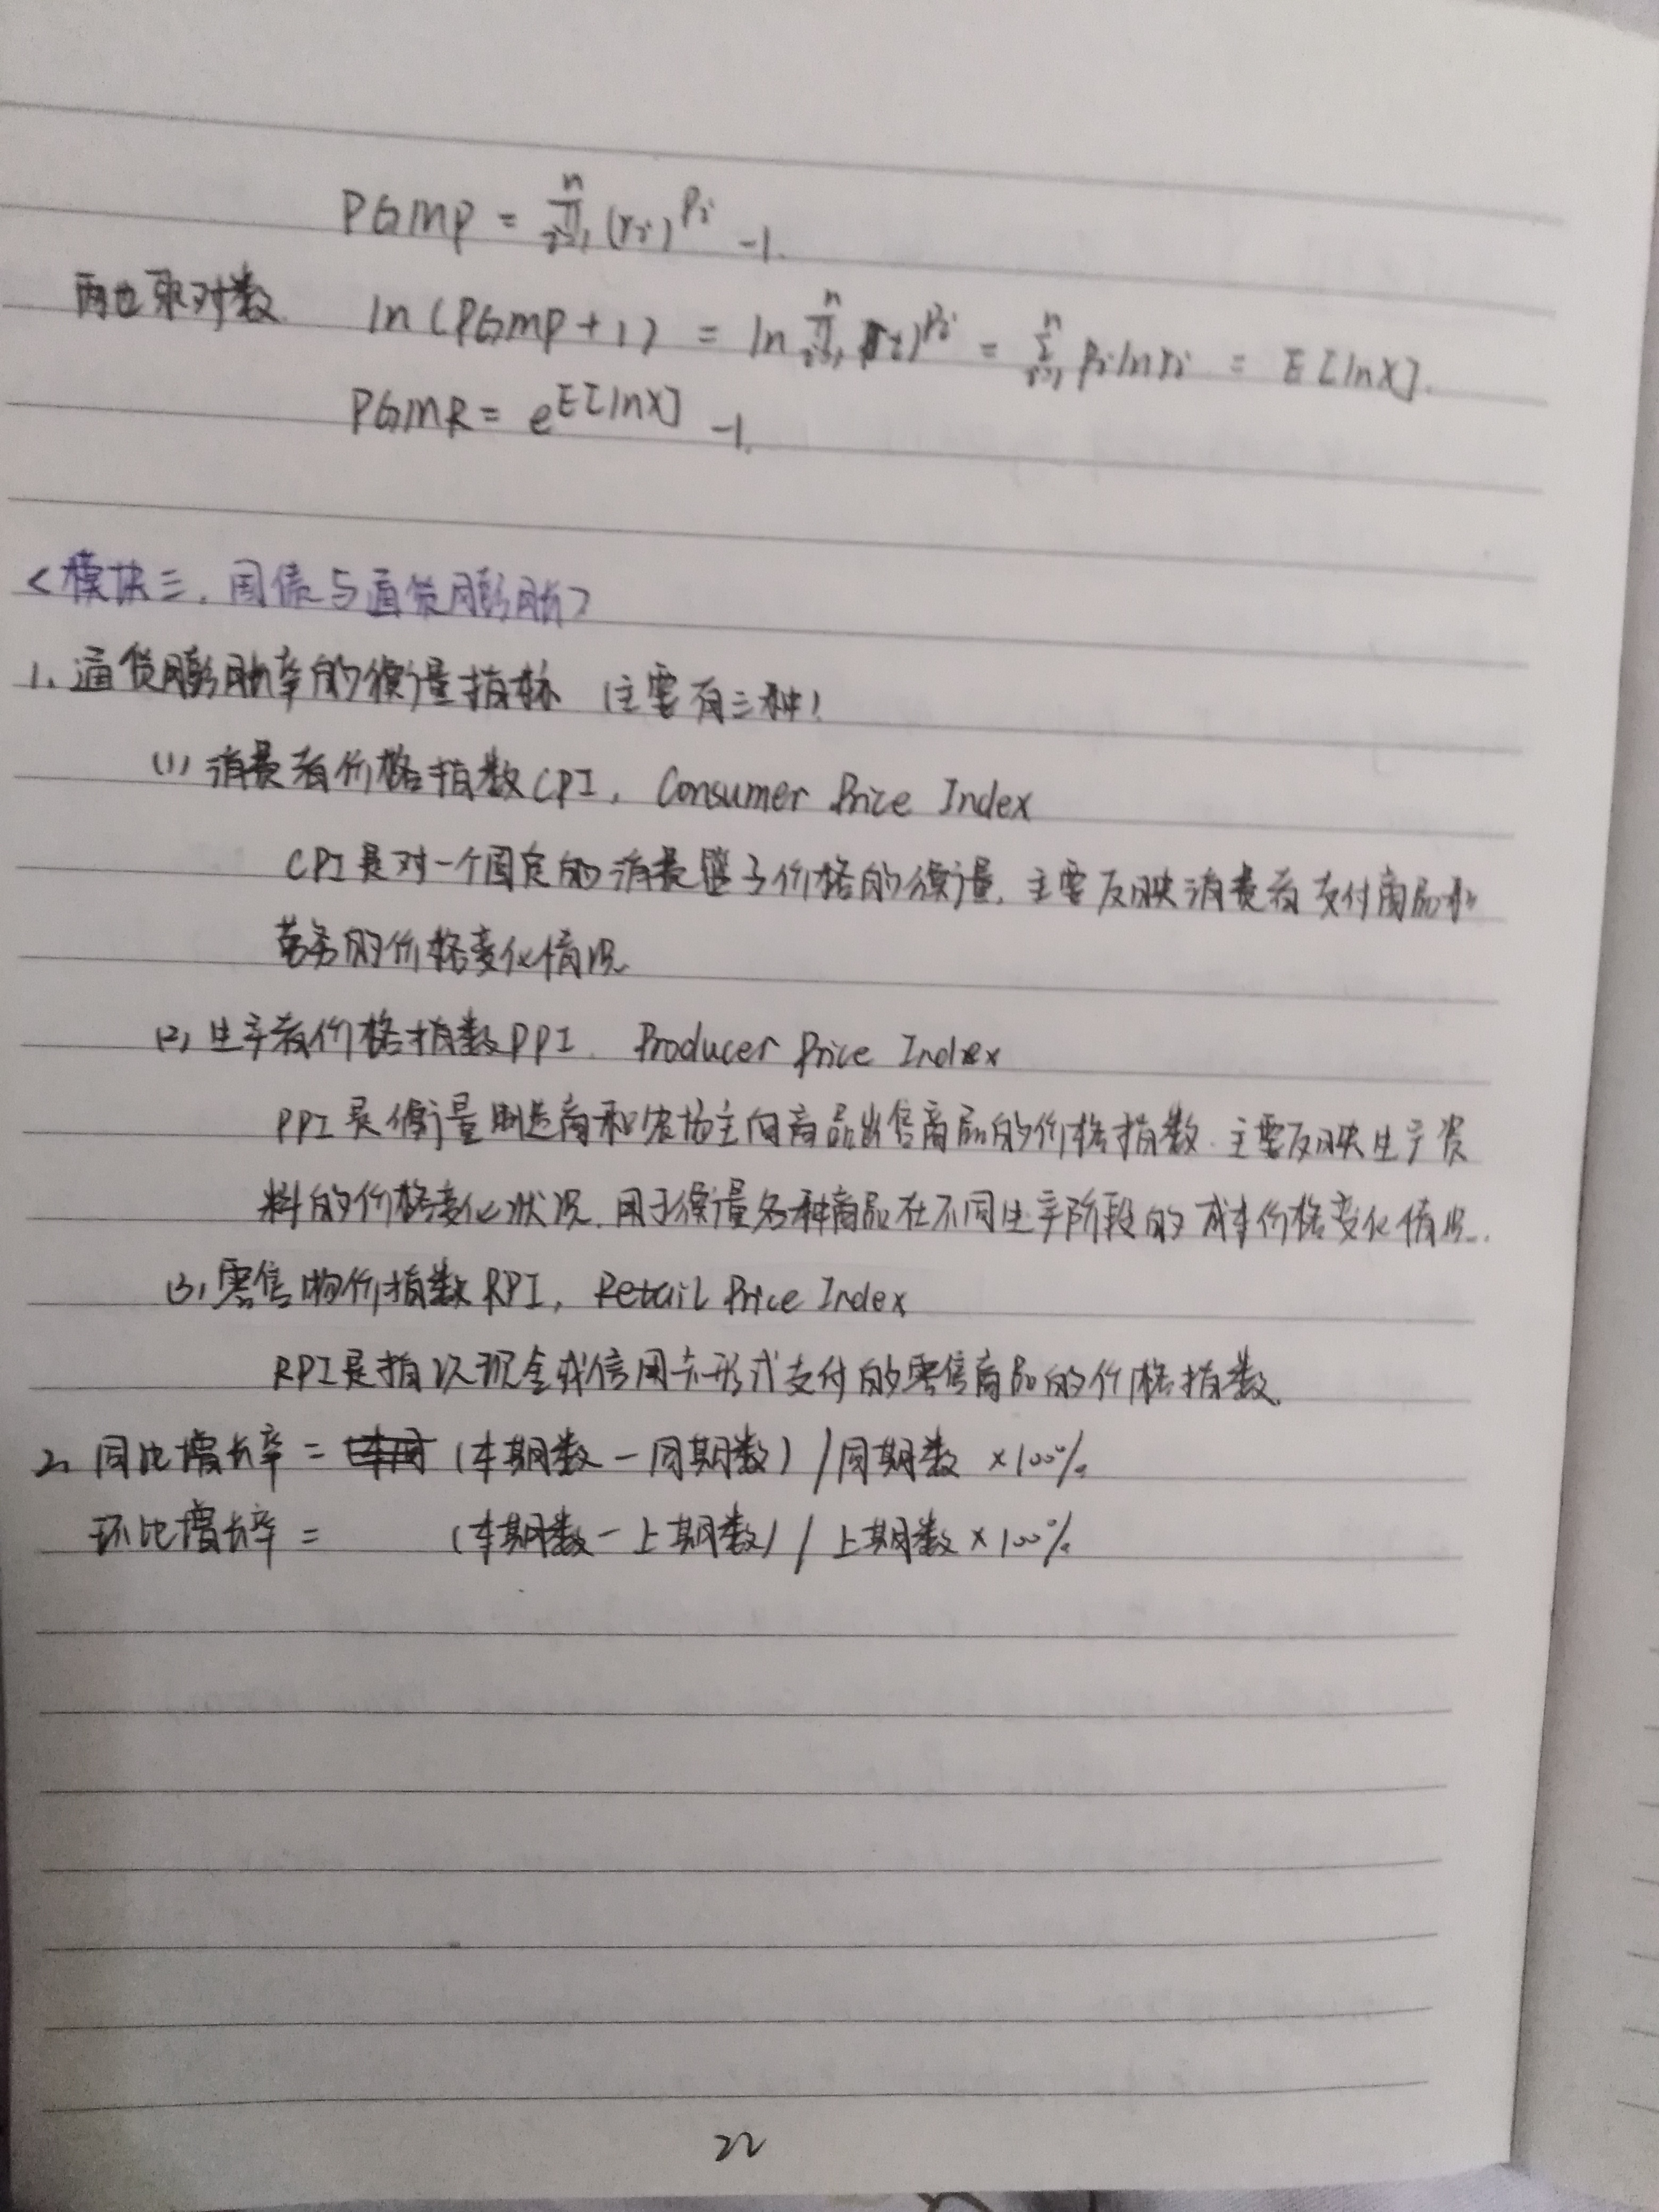 PGmP = ∏ⁿᵢ₌₁ (rᵢ)^Pᵢ -1.
两边取对数 ln(PGmP+1) = ln ∏ⁿᵢ₌₁ (rᵢ)^Pᵢ = Σⁿᵢ₌₁ Pᵢ ln rᵢ = E[lnX].
PGmR = e^E[lnX] -1.
<模块三、国债与通货膨胀>
1. 通货膨胀率的衡量指标 (主要有三种)
(1) 消费者价格指数CPI, Consumer Price Index
CPI是对一个固定的消费篮子价格的衡量, 主要反映消费者支付商品和
劳务的价格变化情况.
(2) 生产者价格指数PPI. Producer Price Index
PPI是衡量制造商和农场主向商品出售商品的价格指数. 主要反映生产资
料的价格变化状况. 用于衡量各种商品在不同生产阶段的成本价格变化情况.
(3) 零售物价指数RPI, Retail Price Index
RPI是指以现金或信用卡形式支付的零售商品的价格指数.
2. 同比增长率 = (本期数 - 同期数) / 同期数 ×100%.
环比增长率 = (本期数 - 上期数) / 上期数 ×100%.
22